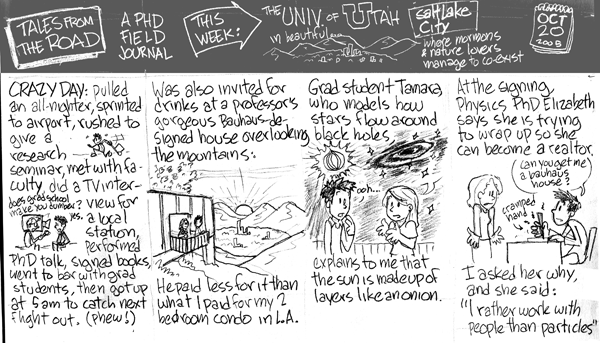 TALES FROM
THE ROAD
A PHD
FIELD
JOURNAL
THIS
WEEK:
THE UNIV. OF UTAH
in beautiful
Salt Lake
City
where mormons
& nature lovers
manage to co-exist
OCT
20
2008
CRAZY DAY: pulled
an all-nighter, sprinted
to airport, rushed to
give a
research
seminar, met with fa-
culty, did a TV inter-
view for
a local
station,
performed
PhD talk, signed books,
went to bar with grad
students, then got up
at 5am to catch next
flight out. (phew!)
does grad school
make you dumber?
yes.
Was also invited for
drinks at a professor's
gorgeous Bauhaus-de-
signed house overlooking
the mountains:
He paid less for it than
what I paid for my 2
bedroom condo in L.A.
Grad student Tamara,
who models how
stars flow around
black holes,
ooh...
explains to me that
the sun is made up of
layers like an onion.
At the signing,
Physics PhD Elizabeth
says she is trying
to wrap up so she
can become a realtor.
Can you get me
a bauhaus
house?
cramped
hand
I asked her why,
and she said:
"I rather work with
people than particles"